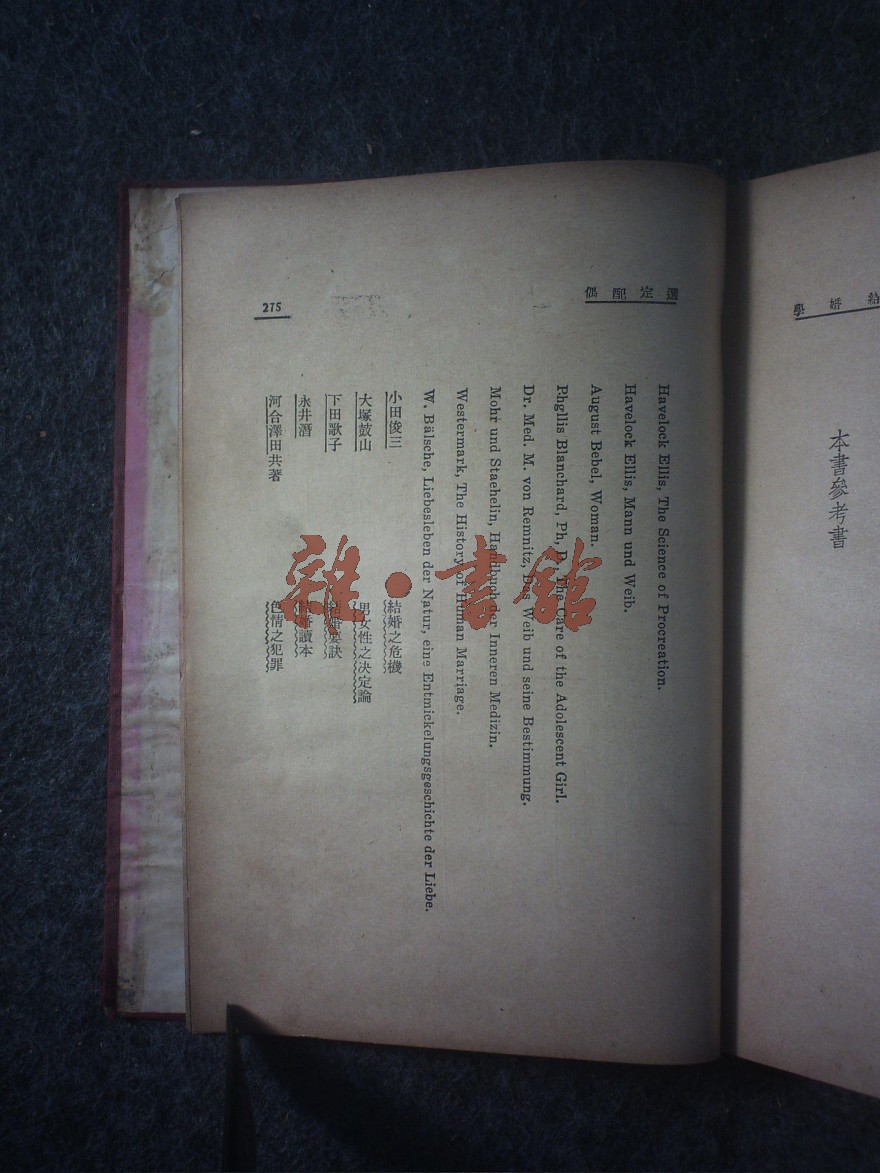 結婚學
本書參考書
選定配偶
Havelock Ellis, The Science of Procreation.
Havelock Ellis, Mann und Weib.
August Bebel, Woman.
Phgllis Blanchard, Ph, D., The Care of the Adolescent Girl.
Dr. Med. M. von Remnitz, Das Weib und seine Bestimmung.
Mohr und Staehelin, Handbuch der Inneren Medizin.
Westermark, The History of Human Marriage.
W. Bälsche, Liebesleben der Natur, eine Entmickelungsgeschichte der Liebe.
小田俊三 結婚之危機
大塚鼓山 男女性之决定論
下田歌子 結婚要訣
永井潛 結婚讀本
河合澤田共著 色情之犯罪
275
雜·書館